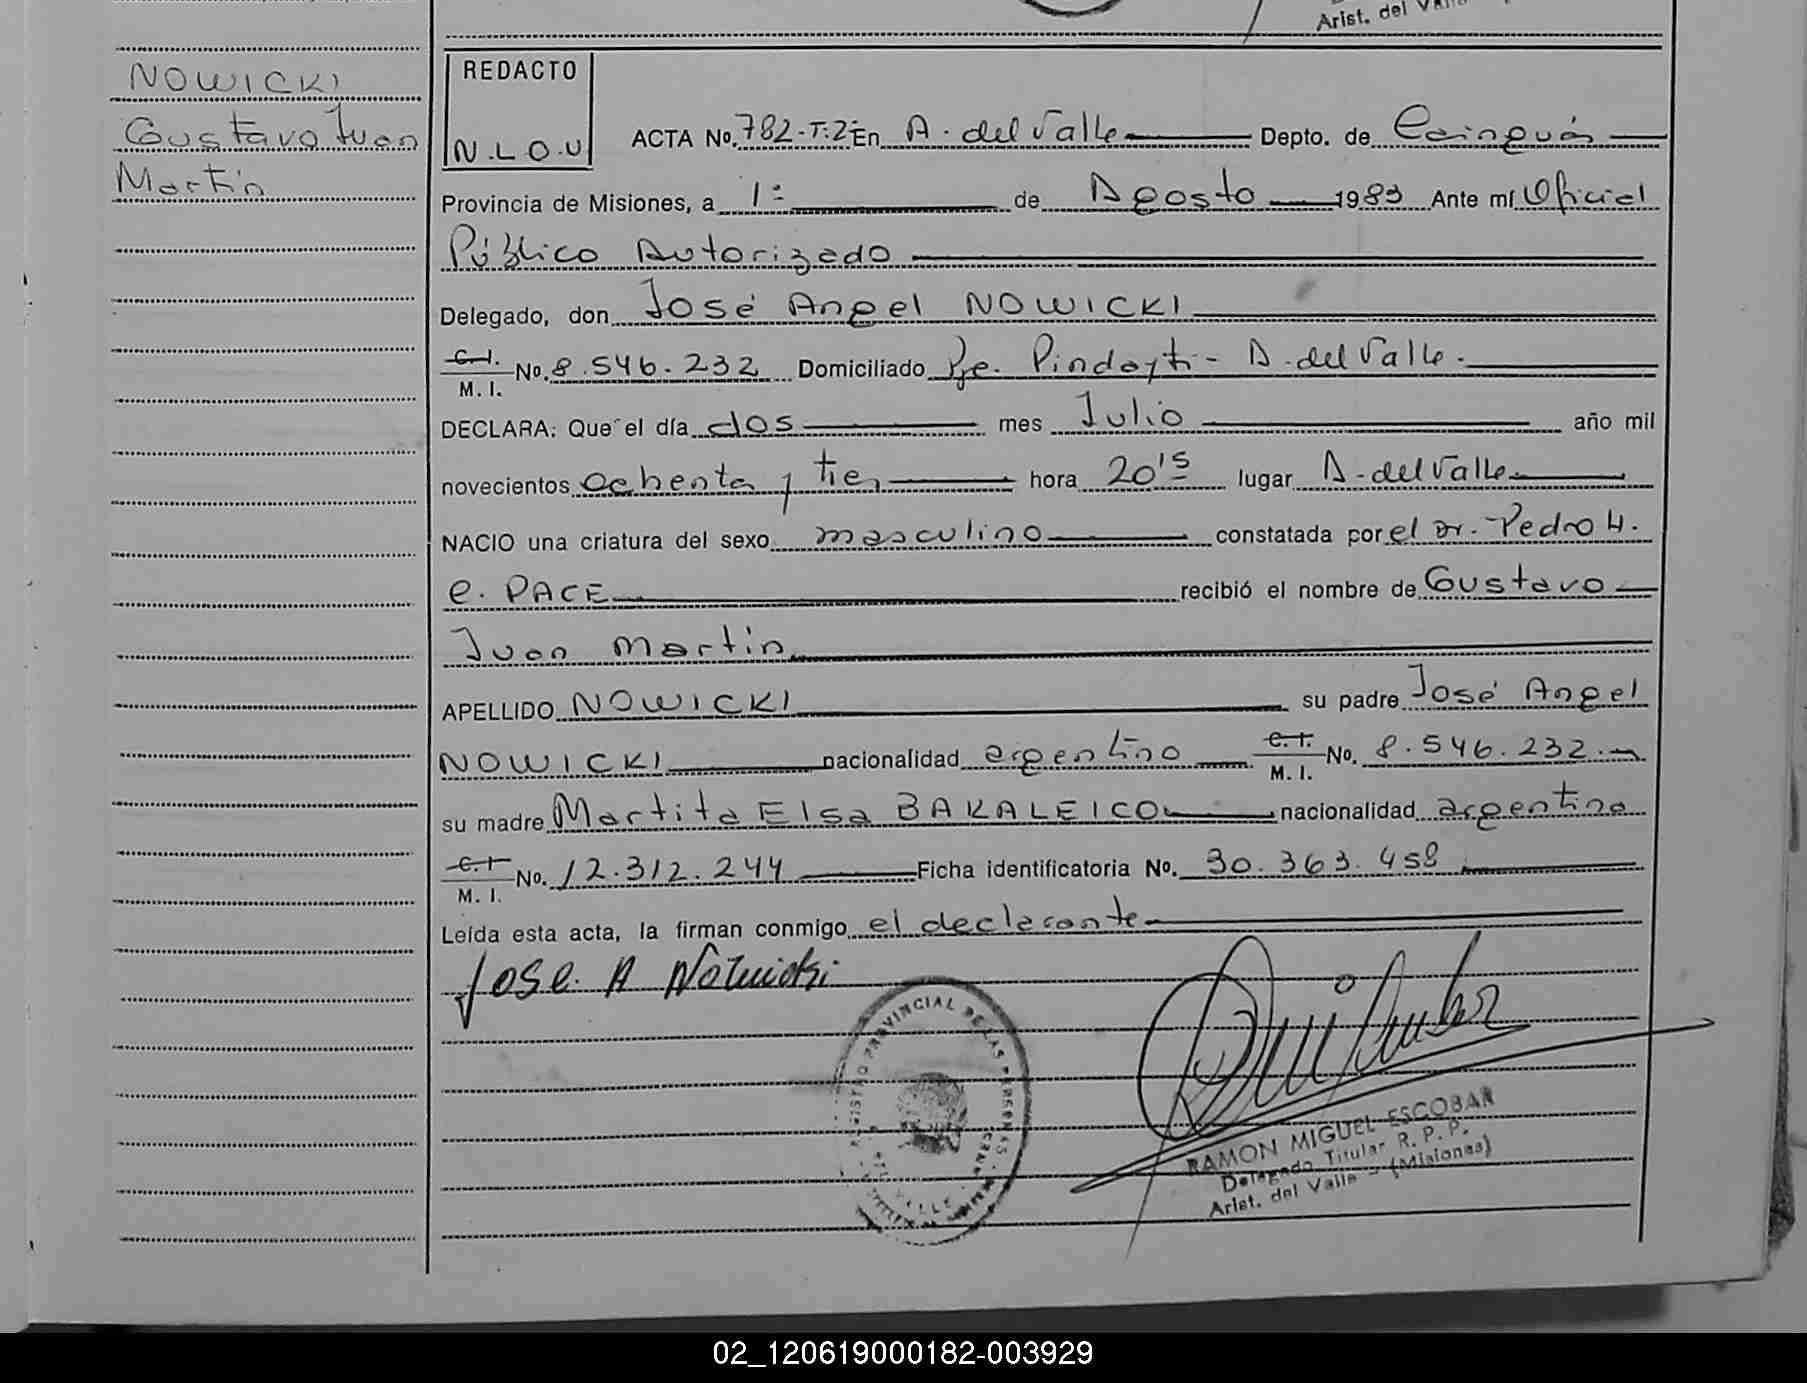 Arist. del Valle
NOWICKI
Gustavo Juan
Martín
REDACTO
N.L.O.U
ACTA No. 782-T:2º En A. del Valle Depto. de Cainguás
Provincia de Misiones, a 1º de Agosto 1983 Ante mí Oficial
Público Autorizado
Delegado, don José Angel NOWICKI
C.I. M.I. No. 8.546.232 Domiciliado Pje. Pindayti - A. del Valle.
DECLARA: Que el día dos mes Julio año mil
novecientos ochenta y tres hora 20'15 lugar A. del Valle
NACIO una criatura del sexo masculino constatada por el Dr. Pedro H.
e. PACE recibió el nombre de Gustavo
Juan Martín
APELLIDO NOWICKI su padre José Angel
NOWICKI nacionalidad argentino C.I. M.I. No. 8.546.232
su madre Martita Elsa BAKALEICO nacionalidad argentina
C.I M.I. No. 12.312.244 Ficha identificatoria No. 30.363.458
Leída esta acta, la firman conmigo el declarante
Jose. A Nowicki
REGISTRO PROVINCIAL DE LAS PERSONAS
VALLE
RAMON MIGUEL ESCOBAR
Delegado Titular R. P. P.
Arist. del Valle - (Misiones)
02_120619000182-003929